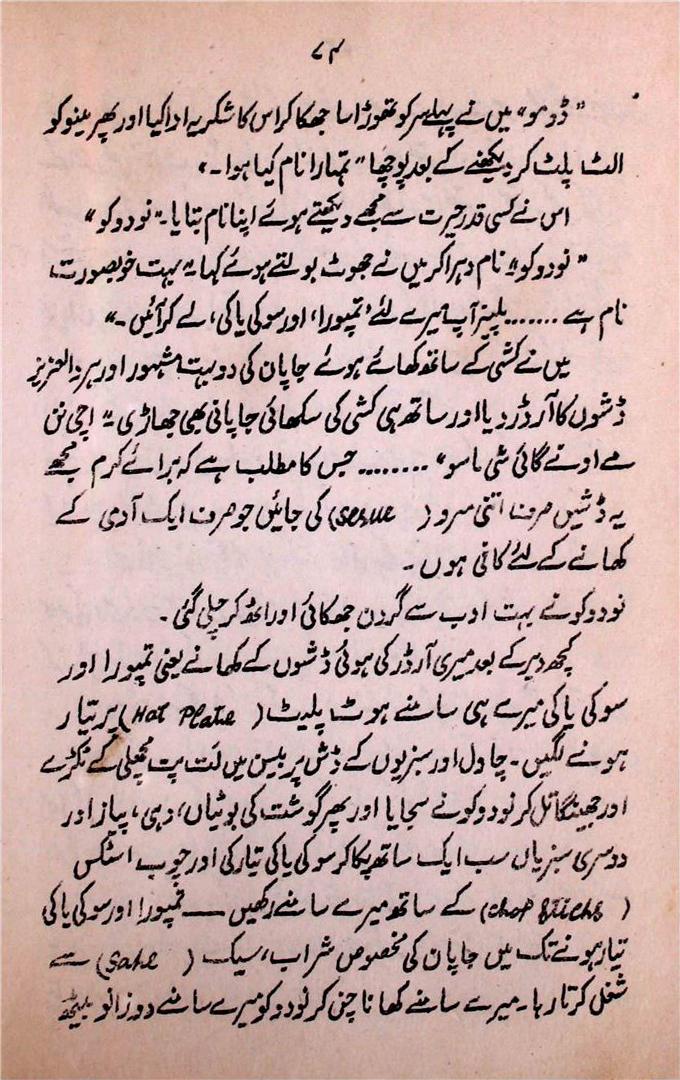 ۷۴
”ڈومو“ میں نے پہلے سر کو تھوڑا سا جھکا کر اس کا شکریہ ادا کیا اور پھر مینو کو
الٹ پلٹ کر دیکھنے کے بعد پوچھا ”تمہارا نام کیا ہوا۔“
اس نے کسی قدر حیرت سے مجھے دیکھتے ہوئے اپنا نام بتایا۔ ”نودوکو“
”نودوکو“ نام دہرا کر میں نے جھوٹ بولتے ہوئے کہا ”بہت خوبصورت
نام ہے ....... پلیز آپ میرے لئے ’تمپورا‘ اور سوکی یاکی، لے کر آئیں۔“
میں نے کشی کے ساتھ کھائے ہوئے جاپان کی دو بہت مشہور اور ہر دلعزیز
ڈشوں کا آرڈر دیا اور ساتھ ہی کشی کی سکھائی جاپانی بھی جھاڑی ”اچی نن
مے اونے گائی شی ماسو“ ........ جس کا مطلب ہے کہ برائے کرم مجھے
یہ ڈشیں صرف اتنی سرو (serve) کی جائیں جو صرف ایک آدمی کے
کھانے کے لئے کافی ہوں۔
نودوکو نے بہت ادب سے گردن جھکائی اور اٹھ کر چلی گئی۔
کچھ دیر کے بعد میری آرڈر کی ہوئی ڈشوں کے کھانے یعنی تمپورا اور
سوکی یاکی میرے ہی سامنے ہوٹ پلیٹ (Hot Plate) پر تیار
ہونے لگیں۔ چاول اور سبزیوں کے ڈش پر بیسن میں لت پت مچھلی کے ٹکڑے
اور جھینگا تل کر نودوکو نے سجایا اور پھر گوشت کی بوٹیاں، دہی، پیاز اور
دوسری سبزیاں سب ایک ساتھ پکا کر سوکی یاکی تیار کی اور چوب اسٹکس
(chop sticks) کے ساتھ میرے سامنے رکھیں — تمپورا اور سوکی یاکی
تیار ہونے تک میں جاپان کی مخصوص شراب، سیک (sake) سے
شغل کرتا رہا۔ میرے سامنے کھانا چن کر نودوکو میرے سامنے دوزانو بیٹھ